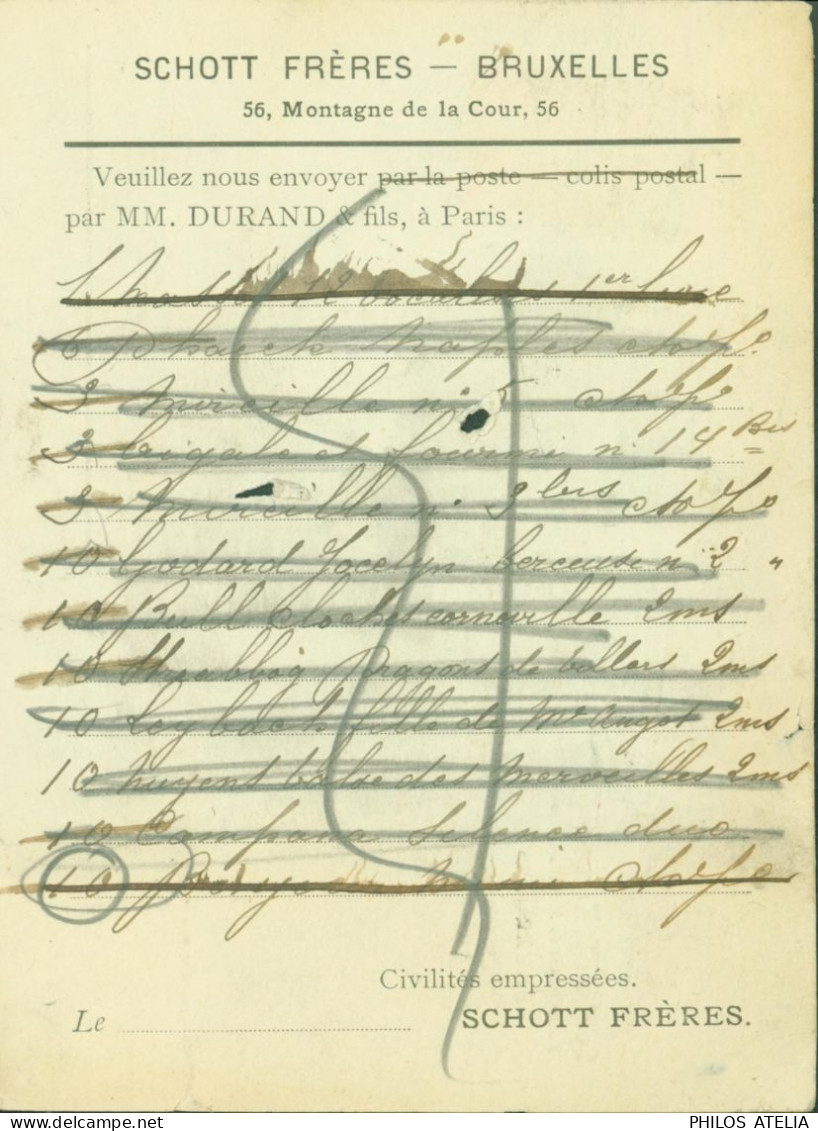 SCHOTT FRÈRES — BRUXELLES
56, Montagne de la Cour, 56
Veuillez nous envoyer par la poste — colis postal —
par MM. DURAND & fils, à Paris :
1er livre
6
3 Mireille n° 5 ch. & p°
3 Cigale et fourmi n° 14 Bis
3 Mireille n° 3 bis ch. & p°
10 Godard Jocelyn berceuse n° 2 "
10 Bull cloches corneville 2ms
10 Streabbog Dragons de Villars 2ms
10 Leybach fille de Me Angot 2ms
10 Nuyens Valse des Merveilles 2ms
10 Campana Silence duo
10 ch. & p°
Civilités empressées.
Le SCHOTT FRÈRES.
PHILOS ATELIA